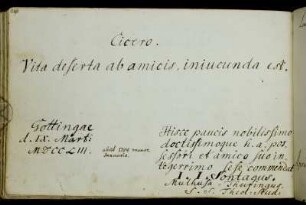 Cicero.
Vita deserta ab amicis, iniucunda est.
Gottingae
d. IX. Marti
MDCCLIII.
Hisce paucis nobilissimo
doctissimoque h. a. pos
sessori et amico suo in
tegerrimo sese commendat
Theol. Stud.